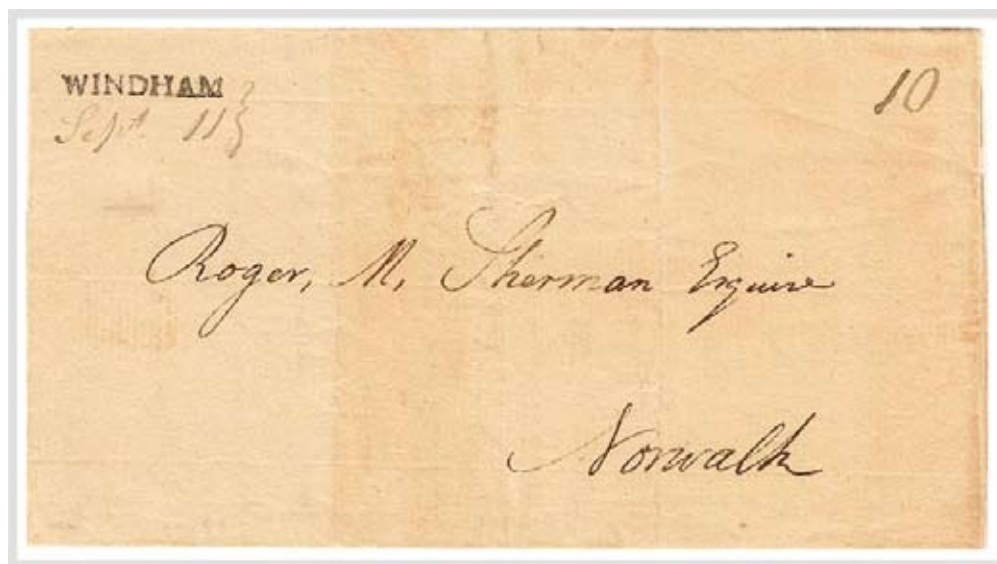 WINDHAM
Sept. 11
10
Roger, M, Sherman Esquire
Norwalk